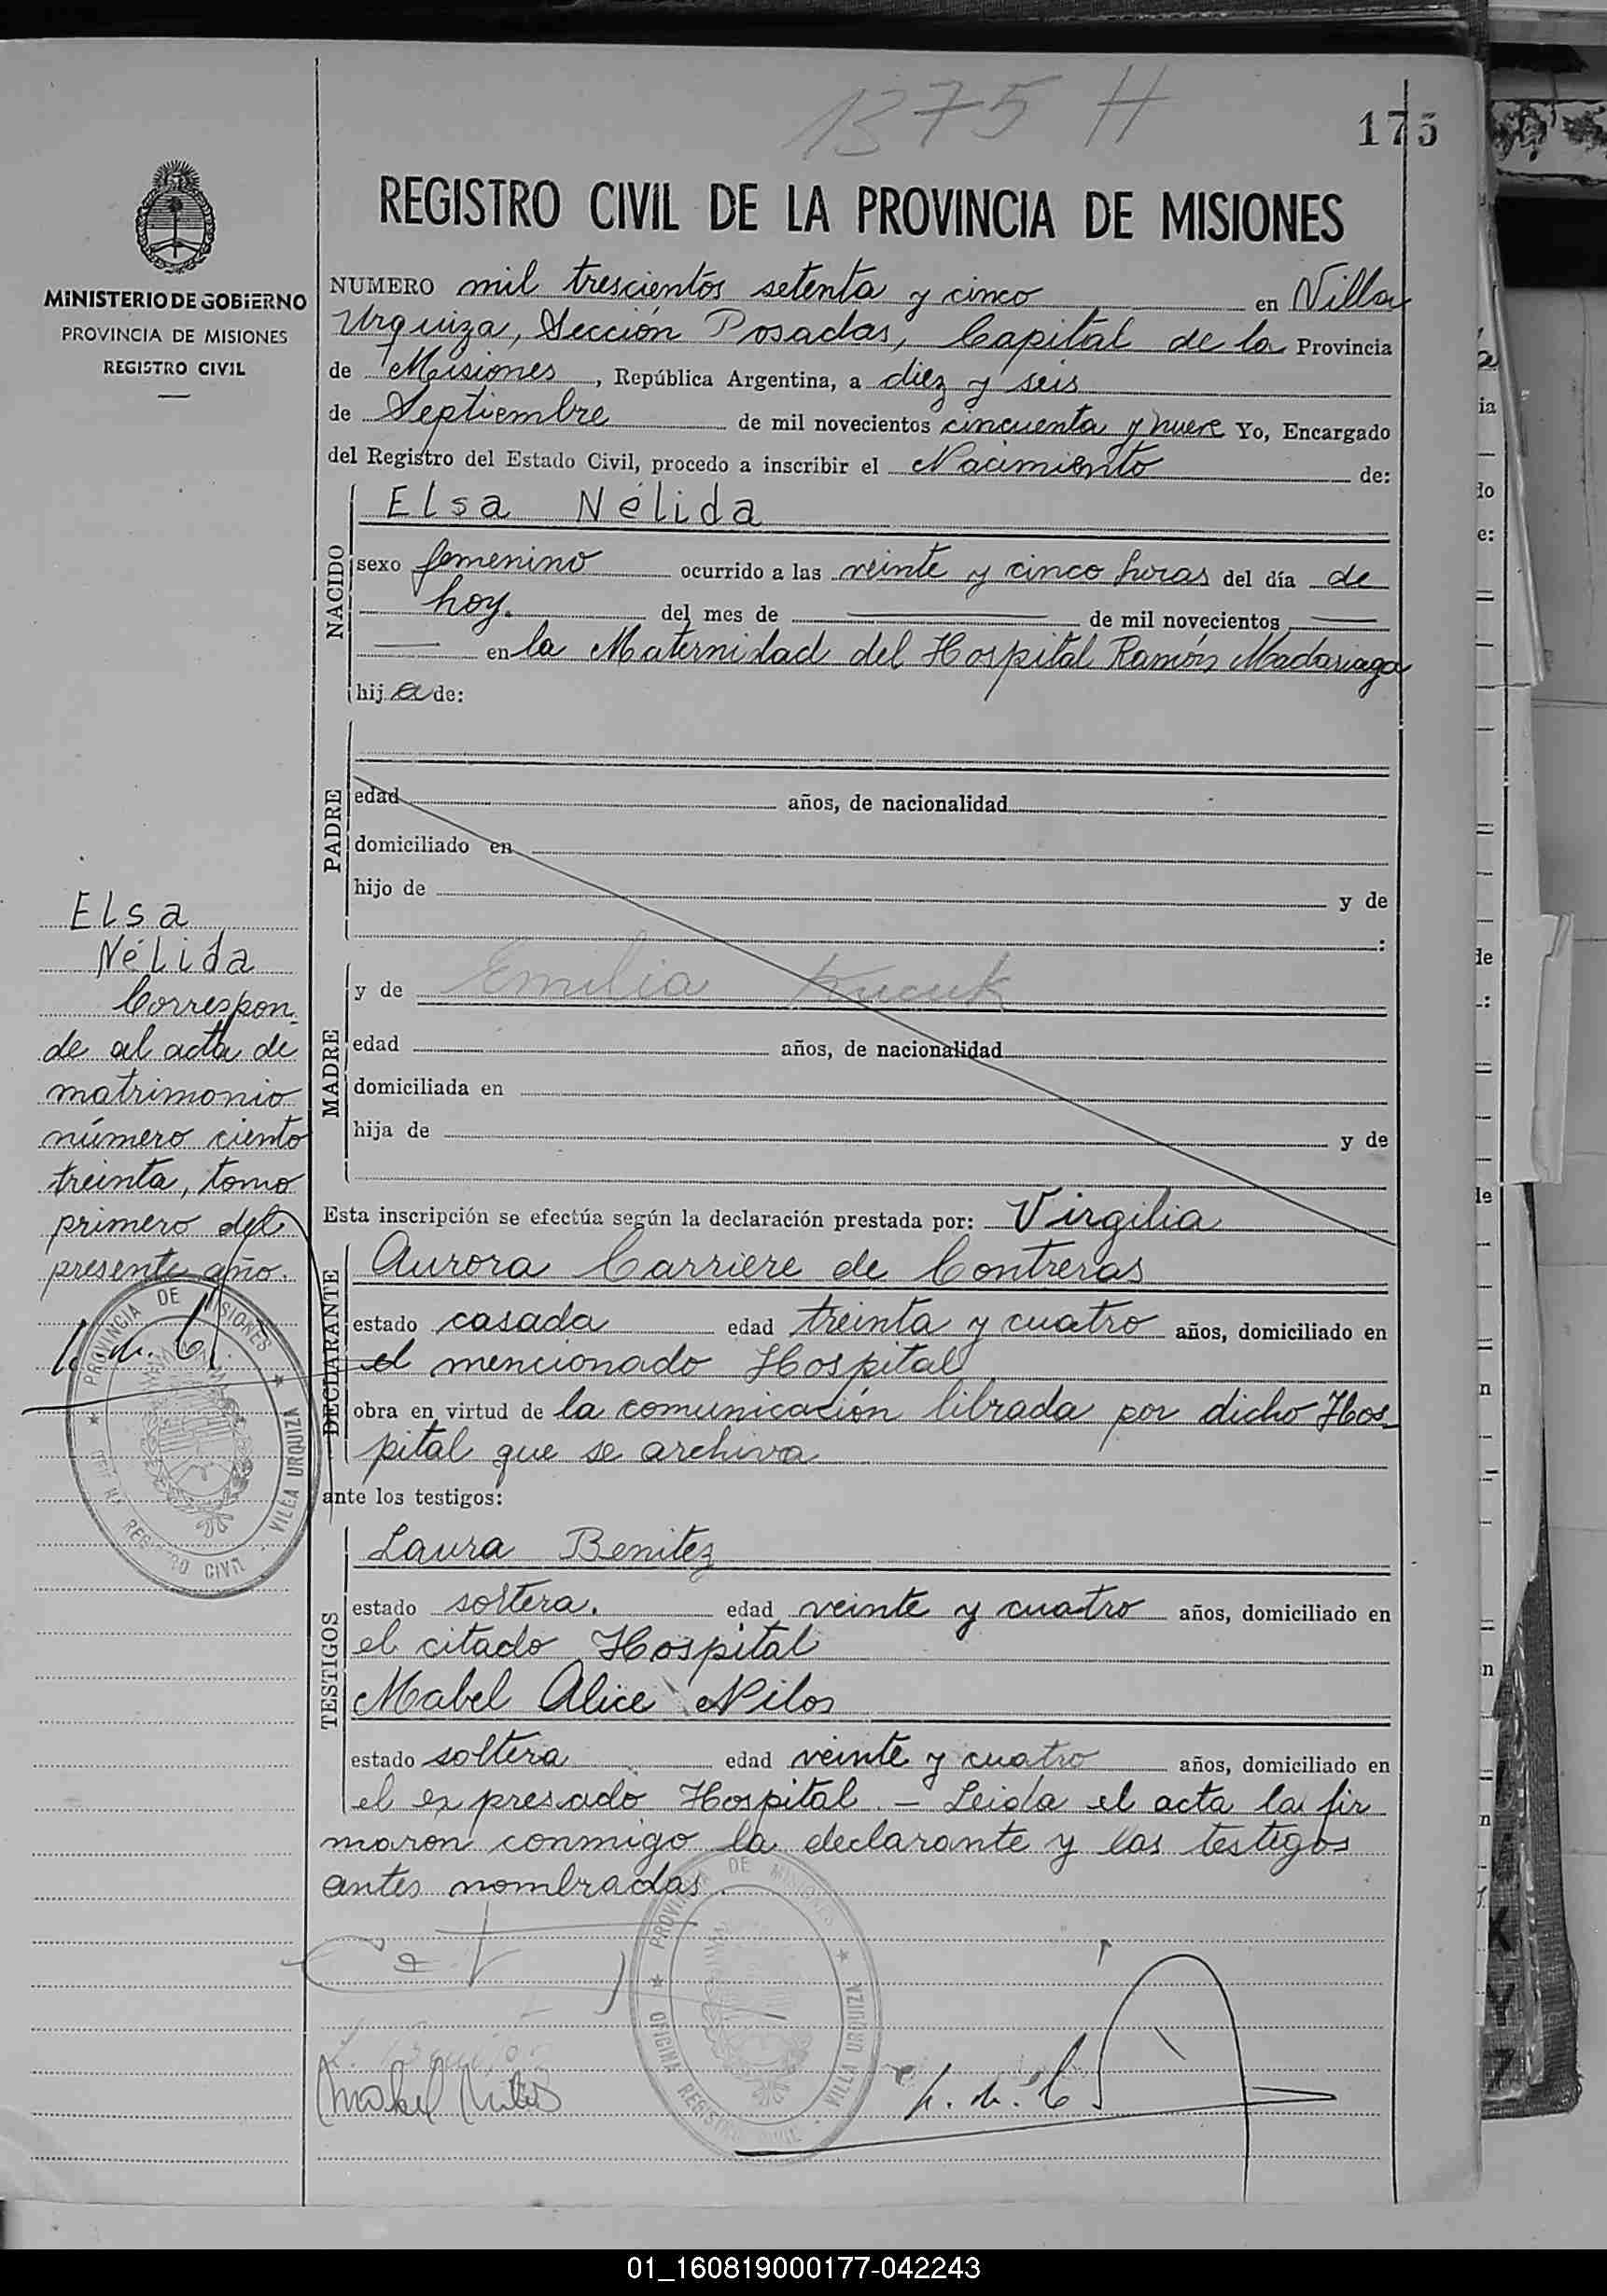 1375 H
175
REGISTRO CIVIL DE LA PROVINCIA DE MISIONES
MINISTERIO DE GOBIERNO
PROVINCIA DE MISIONES
REGISTRO CIVIL
NUMERO mil trescientos setenta y cinco en Villa
Urquiza, Sección Posadas, Capital de la Provincia
de Misiones, República Argentina, a diez y seis
de Septiembre de mil novecientos cincuenta y nueve Yo, Encargado
del Registro del Estado Civil, procedo a inscribir el Nacimiento de:
NACIDO
Elsa Nélida
sexo femenino ocurrido a las veinte y cinco horas del día de
hoy. del mes de de mil novecientos
en la Maternidad del Hospital Ramón Madariaga
hija de:
PADRE
edad años, de nacionalidad
domiciliado en
hijo de y de
:
MADRE
y de Emilia
edad años, de nacionalidad
domiciliada en
hija de y de
Esta inscripción se efectúa según la declaración prestada por: Virgilia
DECLARANTE
Aurora Carriere de Contreras
estado casada edad treinta y cuatro años, domiciliado en
el mencionado Hospital
obra en virtud de la comunicación librada por dicho Hos-
pital que se archiva
ante los testigos:
TESTIGOS
Laura Benitez
estado soltera. edad veinte y cuatro años, domiciliado en
el citado Hospital
Mabel Alice Nilos
estado soltera edad veinte y cuatro años, domiciliado en
el expresado Hospital. - Leida el acta la fir
maron conmigo la declarante y las testigos
antes nombradas.
Elsa
Nélida
Correspon-
de al acta de
matrimonio
número ciento
treinta, tomo
primero del
presente año.
PROVINCIA DE MISIONES
REGISTRO CIVIL
VILLA URQUIZA
PROVINCIA DE MISIONES
OFICINA REGISTRO CIVIL
VILLA URQUIZA
Mabel Nilos
01_160819000177-042243